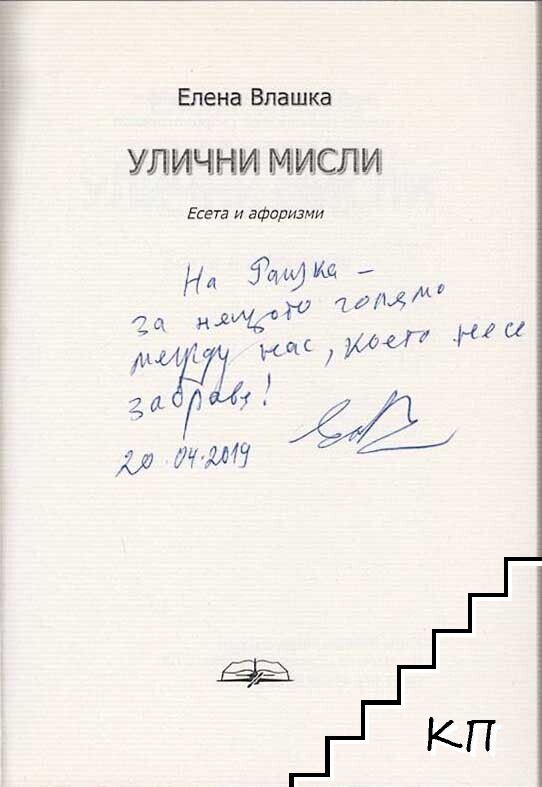 Елена Влашка
УЛИЧНИ МИСЛИ
Есета и афоризми
На –
за нещото голямо
между нас, което не се
забравя!
20.04.2019
КП